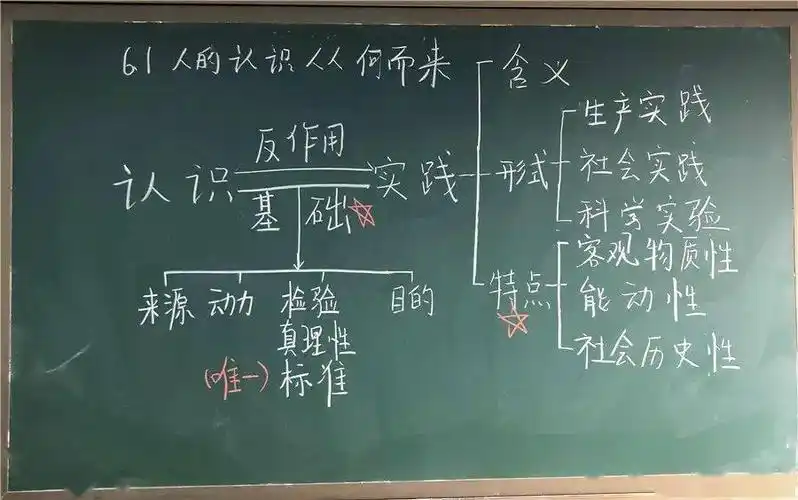 6.1 人的认识从何而来
含义
生产实践
反作用
认识 实践 形式 社会实践
基础
科学实验
客观物质性
来源 动力 检验 目的 特点 能动性
真理性
社会历史性
(唯一) 标准